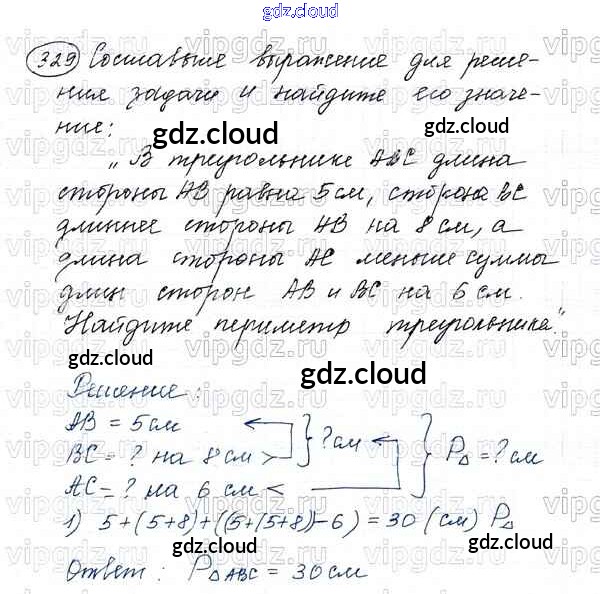 gdz.cloud
329 Составьте выражение для реше-
ния задачи и найдите его значе-
ние:
gdz.cloud
„В треугольнике ABC длина
стороны AB равна 5 см, сторона BC
длиннее стороны AB на 8 см, а
длина стороны AC меньше суммы
длин сторон AB и BC на 6 см.
Найдите периметр треугольника."
gdz.cloud
gdz.cloud
Решение:
AB = 5 см
BC = ? на 8 см > } ? см
AC = ? на 6 см < } P△ = ? см
gdz.cloud
1) 5+(5+8)+((5+(5+8))-6) = 30 (см) P△
gdz.cloud
gdz.cloud
Ответ: P△ABC = 30 см